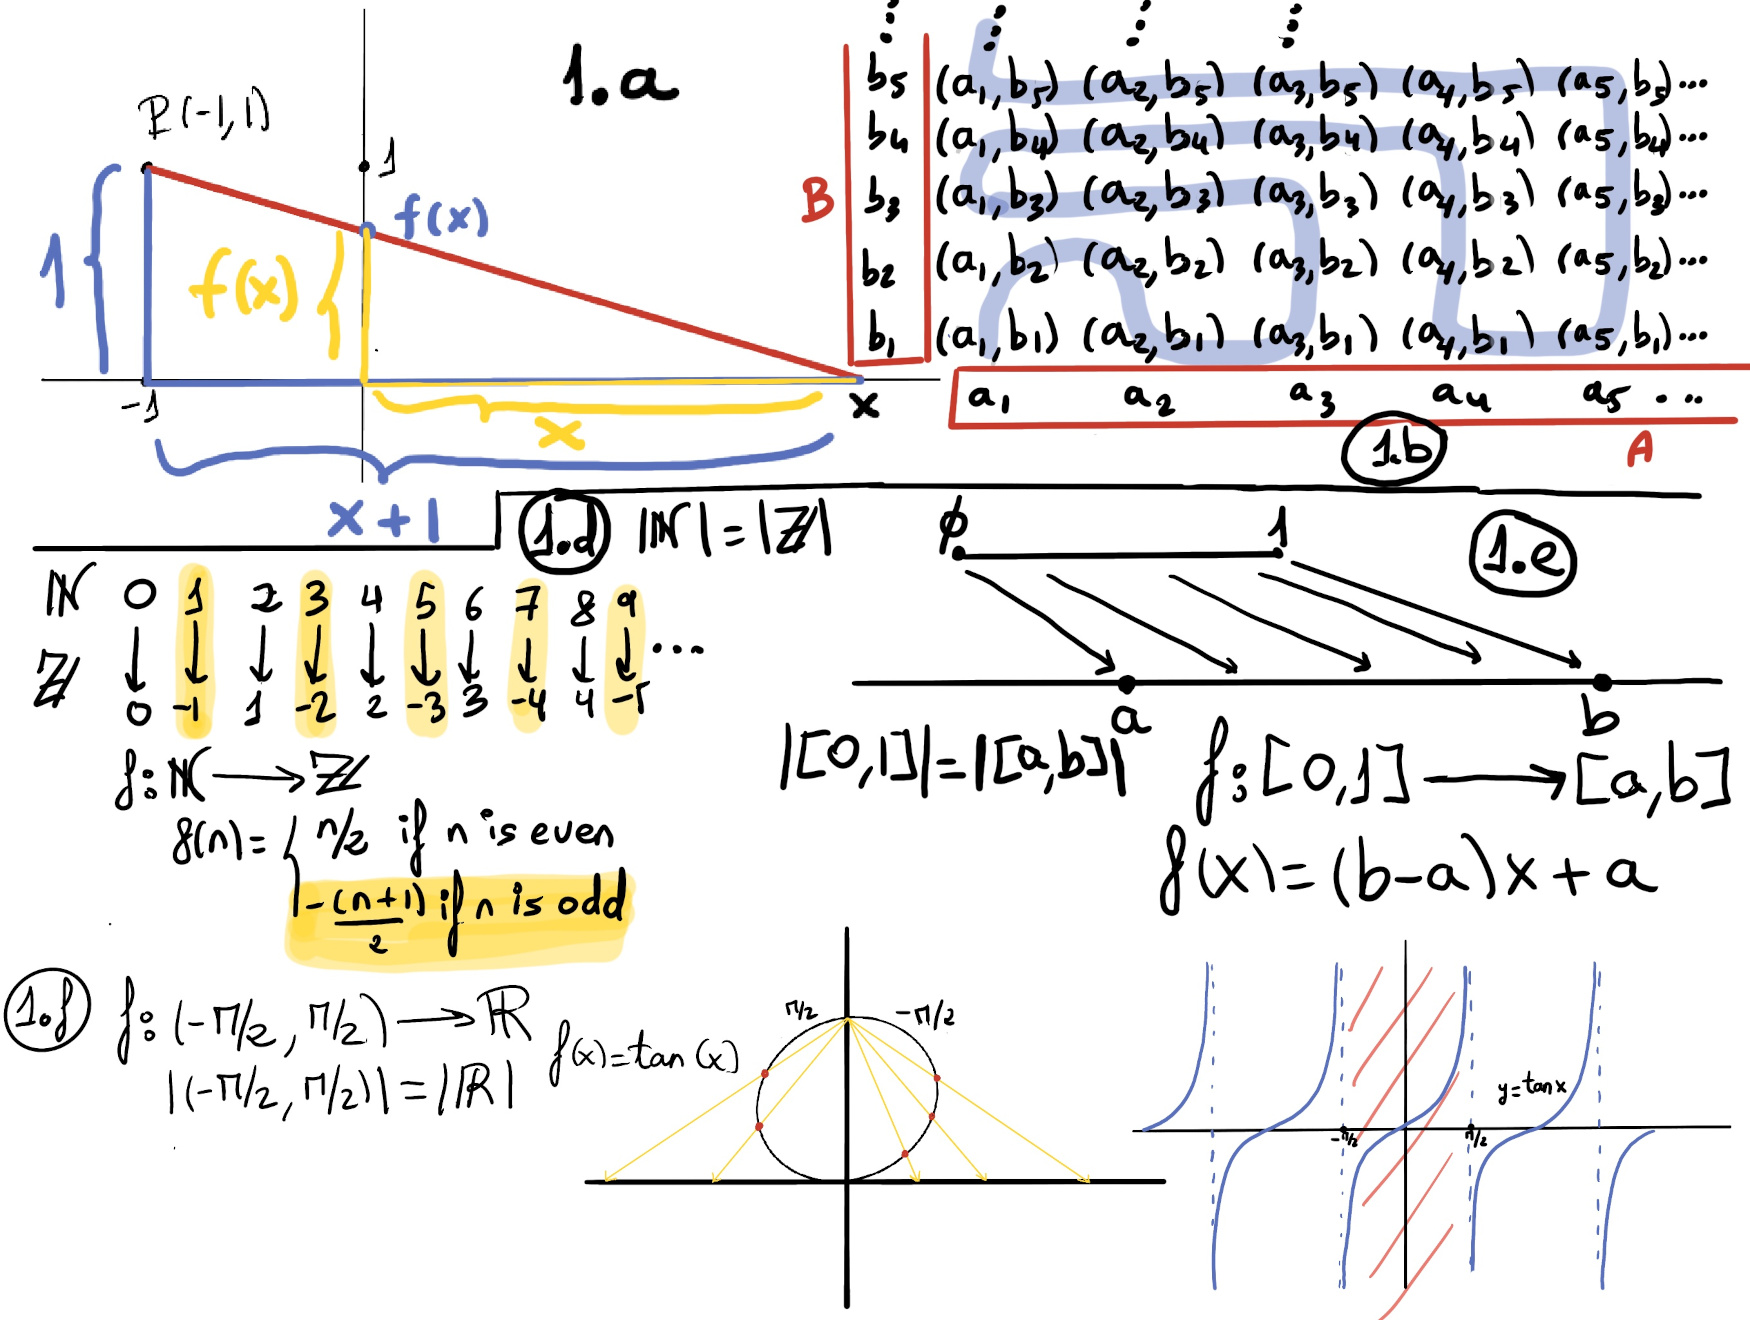 1.a
P(-1,1)
1
f(x)
1
f(x)
-1
x
x
x+1
B
b5 (a1,b5) (a2,b5) (a3,b5) (a4,b5) (a5,b5)...
b4 (a1,b4) (a2,b4) (a3,b4) (a4,b4) (a5,b4)...
b3 (a1,b3) (a2,b3) (a3,b3) (a4,b3) (a5,b3)...
b2 (a1,b2) (a2,b2) (a3,b2) (a4,b2) (a5,b2)...
b1 (a1,b1) (a2,b1) (a3,b1) (a4,b1) (a5,b1)...
a1 a2 a3 a4 a5 ...
1.b
A
1.d |ℕ|=|ℤ|
ℕ 0 1 2 3 4 5 6 7 8 9 ...
ℤ 0 -1 1 -2 2 -3 3 -4 4 -5
f: ℕ → ℤ
f(n)= { n/2 if n is even
-(n+1)/2 if n is odd
0 1
1.e
a b
|[0,1]|=|[a,b]|
f: [0,1] → [a,b]
f(x)=(b-a)x+a
1.f f: (-π/2, π/2) → ℝ
|(-π/2, π/2)|=|ℝ|
f(x)=tan(x)
π/2 -π/2
y=tanx
-π/2 π/2